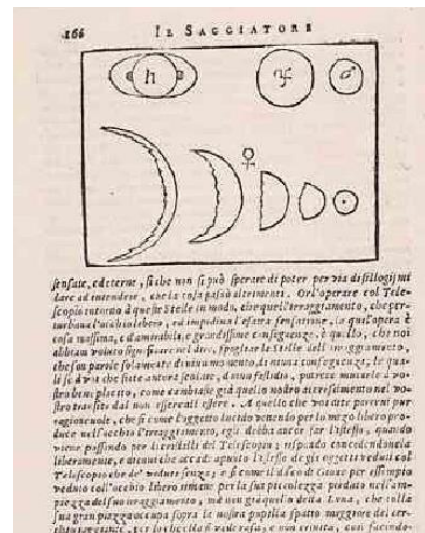 166 IL SAGGIATORE
♄ ♃ ♂
♀
sensate, ed eterne, si che non si può sperare di poter per via di sillogismi
dare ad intendere, che la cosa passi altrimenti. Or l'operare col Tele-
scopio intorno a queste Stelle in modo, che quell'irraggiamento, che per-
turbava l'occhio libero, ed impediva l'esatta sensazione, la qual'opera è
cosa massima, ed ammirabile, e grandissime conseguenze, è quello, che noi
abbiam voluto significare nel dire, spogliare le Stelle dell'irraggiamento,
che son parole solamente di niun momento, di niuna conseguenza; le qua-
li se a voi che siete ancora scolare, danno fastidio, potrete mutarle a vo-
stro beneplacito, come cambiaste già quello nostro accrescimento nel vo-
stro transito dal non essere all'essere. A quello che voi dite parervi pur
ragionevole, che sì come l'oggetto lucido venendo per lo mezo libero pro-
duce nell'occhio l'irraggiamento, egli debba ancor far l'istesso, quando
viene passando per i cristalli del Telescopio; rispondo concedendovela
liberamente, e dicovi che accade appunto l'istesso de gli oggetti veduti col
Telescopio che de' veduti senza; e sì come il disco di Giove per essempio
veduto coll'occhio libero rimane per la sua piccolezza perduto nell'am-
piezza del suo irraggiamento, ma non già quello della Luna, che colla
sua gran piazza occupa sopra la nostra pupilla spazio maggiore del cer-